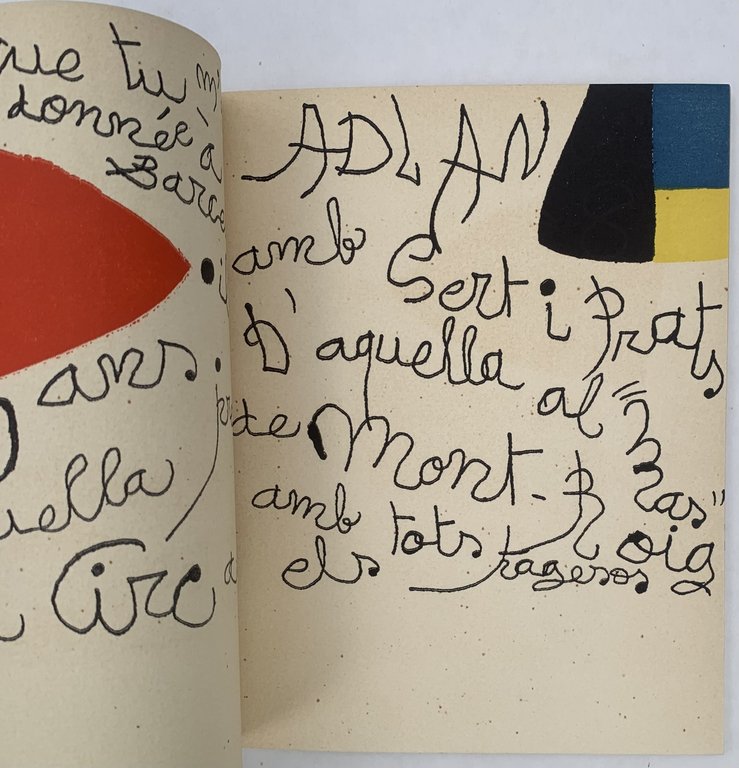 que tu m'
donnée à
Barce
ans.
uella
Circ
ADLAN
amb Sert i Prats
D'aquella al "Mas"
de Mont-Roig
amb tots
els pagesos